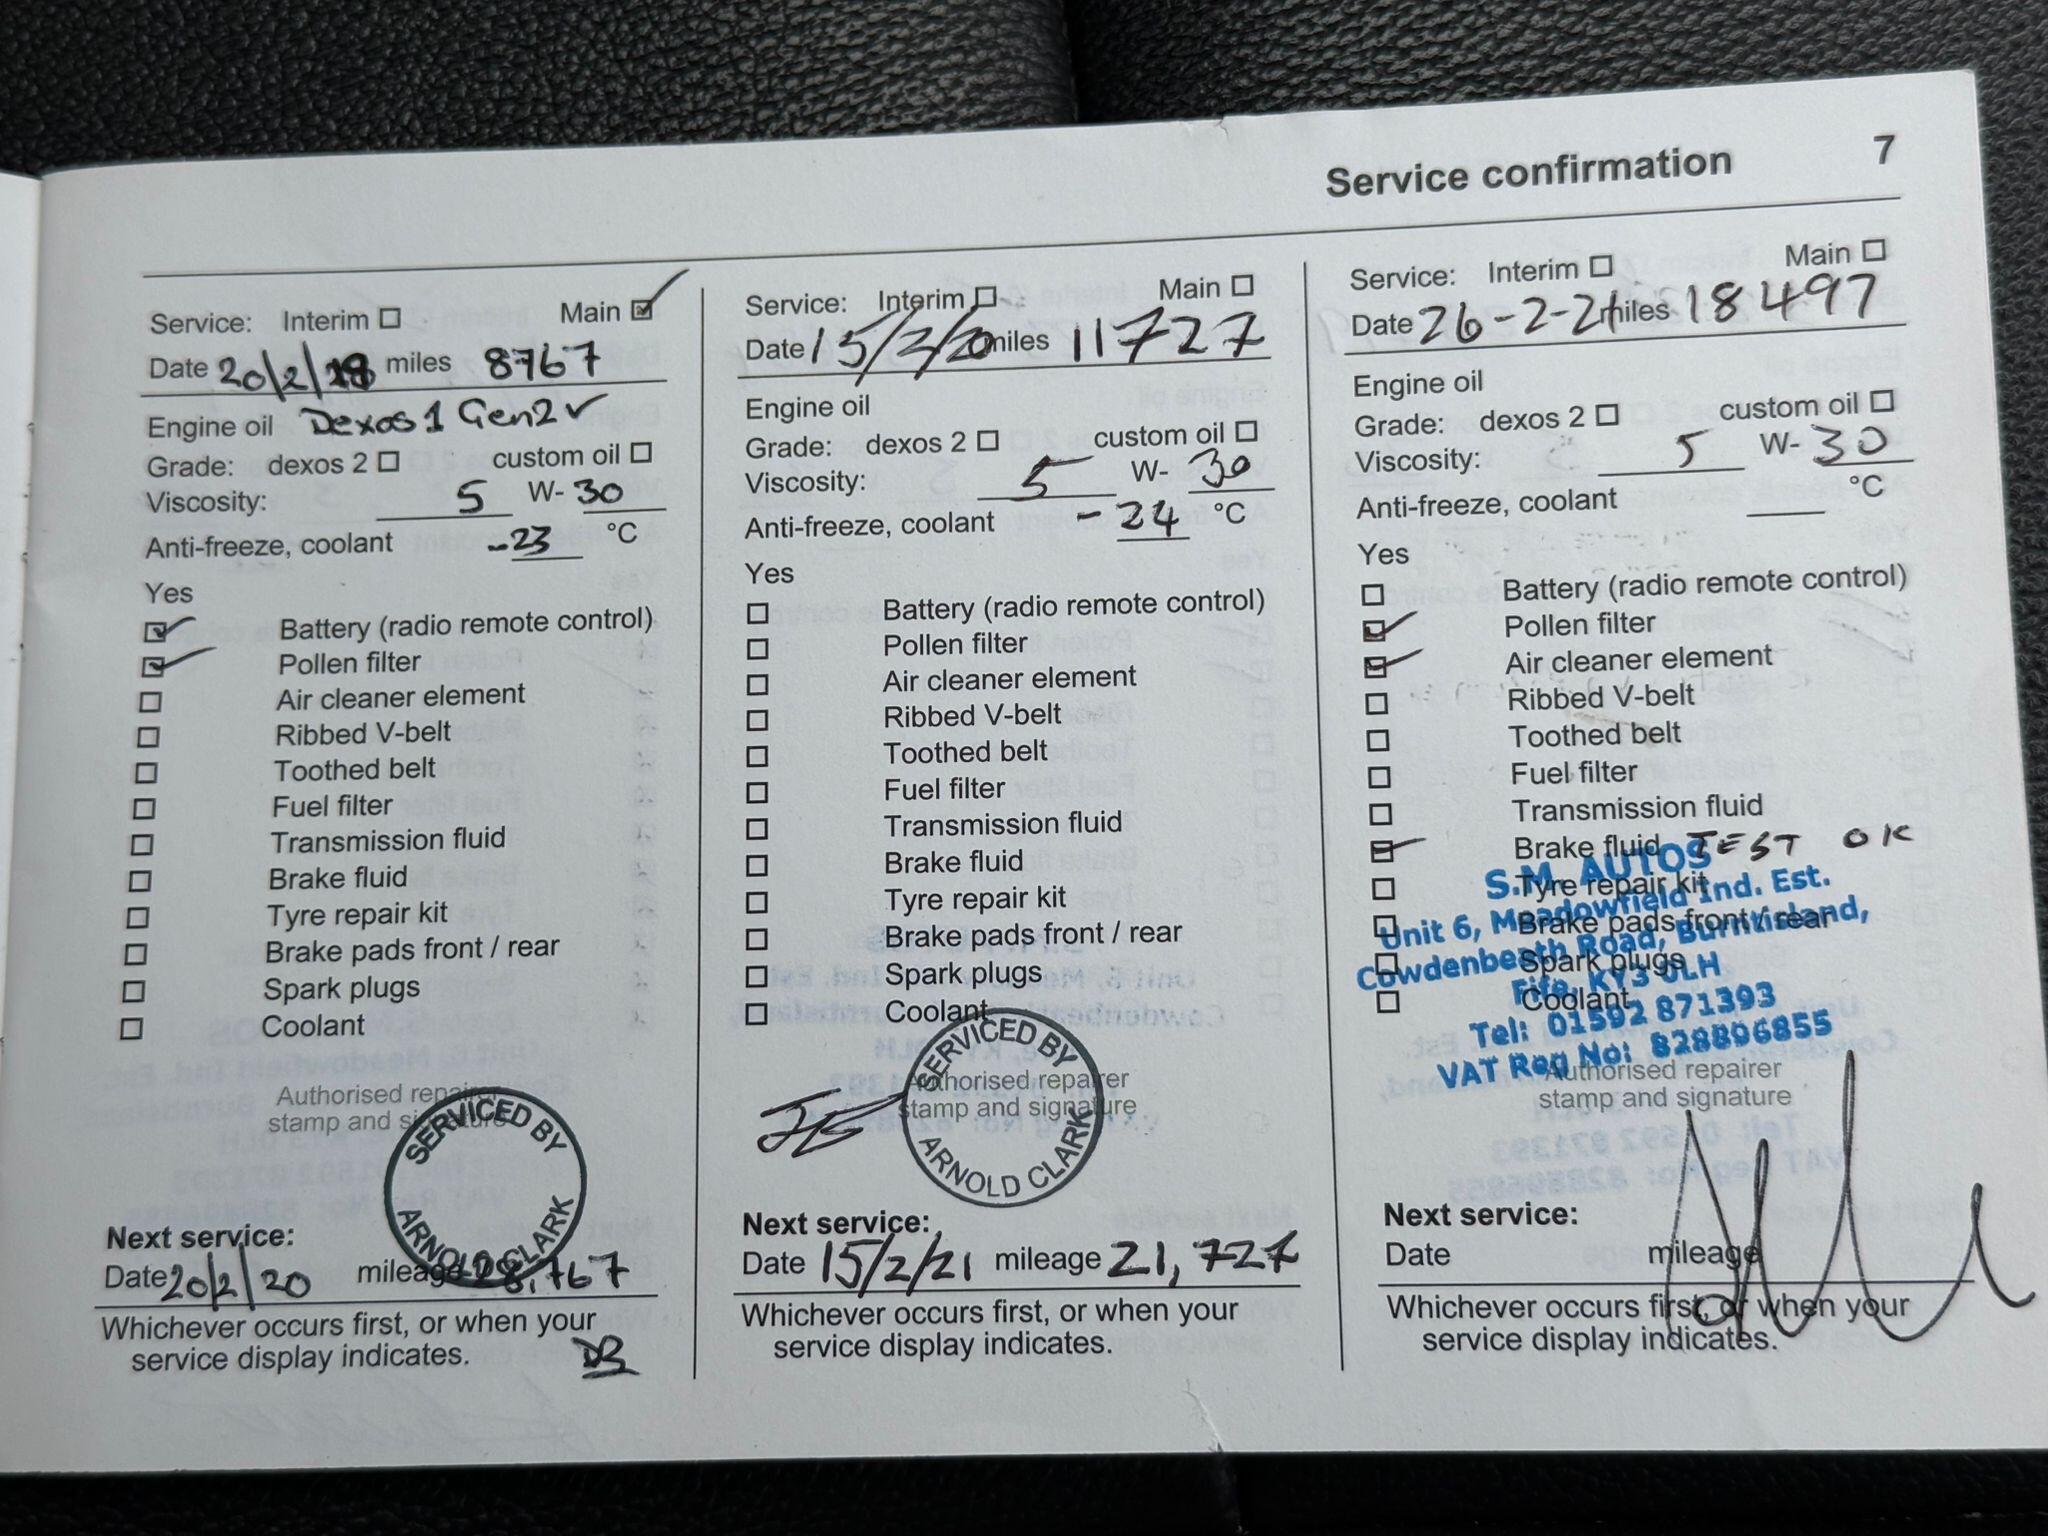 Service confirmation 7
Service: Interim ☐ Main ☑
Date 20/2/ miles 8767
Engine oil Dexos 1 Gen2 ✓
Grade: dexos 2 ☐ custom oil ☐
Viscosity: 5 W- 30
Anti-freeze, coolant -23 °C
Yes
☑ Battery (radio remote control)
☑ Pollen filter
☐ Air cleaner element
☐ Ribbed V-belt
☐ Toothed belt
☐ Fuel filter
☐ Transmission fluid
☐ Brake fluid
☐ Tyre repair kit
☐ Brake pads front / rear
☐ Spark plugs
☐ Coolant
Authorised repairer
stamp and signature
SERVICED BY
ARNOLD CLARK
Next service:
Date 20/2/20 mileage 28,767
Whichever occurs first, or when your
service display indicates.
DB
Service: Interim ☐ Main ☐
Date 15/2/20 miles 11727
Engine oil
Grade: dexos 2 ☐ custom oil ☐
Viscosity: 5 W- 30
Anti-freeze, coolant -24 °C
Yes
☐ Battery (radio remote control)
☐ Pollen filter
☐ Air cleaner element
☐ Ribbed V-belt
☐ Toothed belt
☐ Fuel filter
☐ Transmission fluid
☐ Brake fluid
☐ Tyre repair kit
☐ Brake pads front / rear
☐ Spark plugs
☐ Coolant
SERVICED BY
Authorised repairer
stamp and signature
ARNOLD CLARK
Next service:
Date 15/2/21 mileage 21,727
Whichever occurs first, or when your
service display indicates.
Service: Interim ☐ Main ☐
Date 26-2-21 miles 18497
Engine oil
Grade: dexos 2 ☐ custom oil ☐
Viscosity: 5 W- 30
Anti-freeze, coolant °C
Yes
☐ Battery (radio remote control)
☑ Pollen filter
☑ Air cleaner element
☐ Ribbed V-belt
☐ Toothed belt
☐ Fuel filter
☐ Transmission fluid
☑ Brake fluid TEST OK
☐ Tyre repair kit
☐ Brake pads front / rear
☐ Spark plugs
☐ Coolant
S.M. AUTOS
Unit 6, Meadowfield Ind. Est.
Cowdenbeath Road, Burntisland,
Fife, KY3 0LH
Tel: 01592 871393
VAT Reg No: 828896855
Authorised repairer
stamp and signature
Next service:
Date mileage
Whichever occurs first, or when your
service display indicates.